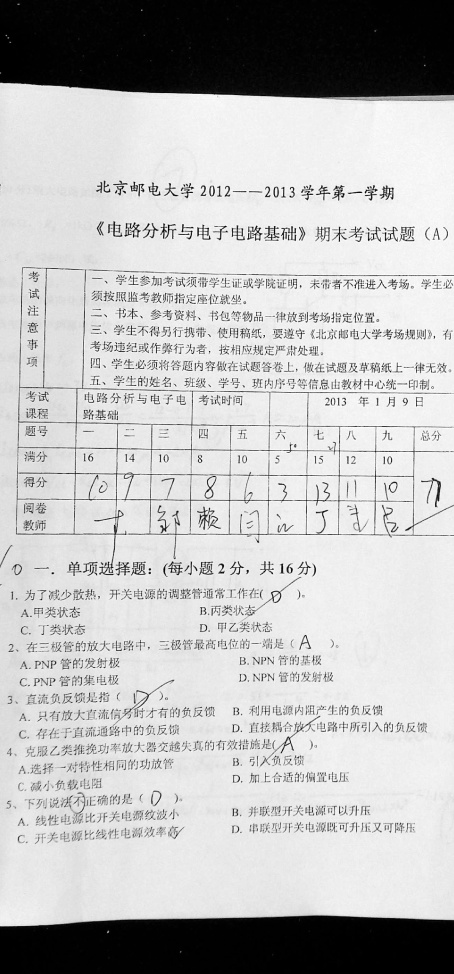 北京邮电大学 2012——2013 学年第一学期
《电路分析与电子电路基础》期末考试试题（A）
考试注意事项
一、学生参加考试须带学生证或学院证明，未带者不准进入考场。学生必
须按照监考教师指定座位就坐。
二、书本、参考资料、书包等物品一律放到考场指定位置。
三、学生不得另行携带、使用稿纸，要遵守《北京邮电大学考场规则》，有
考场违纪或作弊行为者，按相应规定严肃处理。
四、学生必须将答题内容做在试题答卷上，做在试题及草稿纸上一律无效。
五、学生的姓名、班级、学号、班内序号等信息由教材中心统一印制。
考试课程 电路分析与电子电路基础 考试时间 2013 年 1 月 9 日
题号 一 二 三 四 五 六 七 八 九 总分
满分 16 14 10 8 10 5 15 12 10
得分 10 9 7 8 6 3 13 11 10 77
阅卷教师
10 一．单项选择题：(每小题 2 分，共 16 分)
1. 为了减少散热，开关电源的调整管通常工作在( D )。
A.甲类状态 B.丙类状态
C. 丁类状态 D. 甲乙类状态
2、在三极管的放大电路中，三极管最高电位的一端是（ A ）。
A. PNP 管的发射极 B. NPN 管的基极
C. PNP 管的集电极 D. NPN 管的发射极
3、直流负反馈是指（ D ）。
A. 只有放大直流信号时才有的负反馈 B. 利用电源内阻产生的负反馈
C. 存在于直流通路中的负反馈 D. 直接耦合放大电路中所引入的负反馈
4、克服乙类推挽功率放大器交越失真的有效措施是( A )。
A.选择一对特性相同的功放管 B. 引入负反馈
C. 减小负载电阻 D. 加上合适的偏置电压
5、下列说法不正确的是（ D ）。
A. 线性电源比开关电源纹波小 B. 并联型开关电源可以升压
C. 开关电源比线性电源效率高 D. 串联型开关电源既可升压又可降压